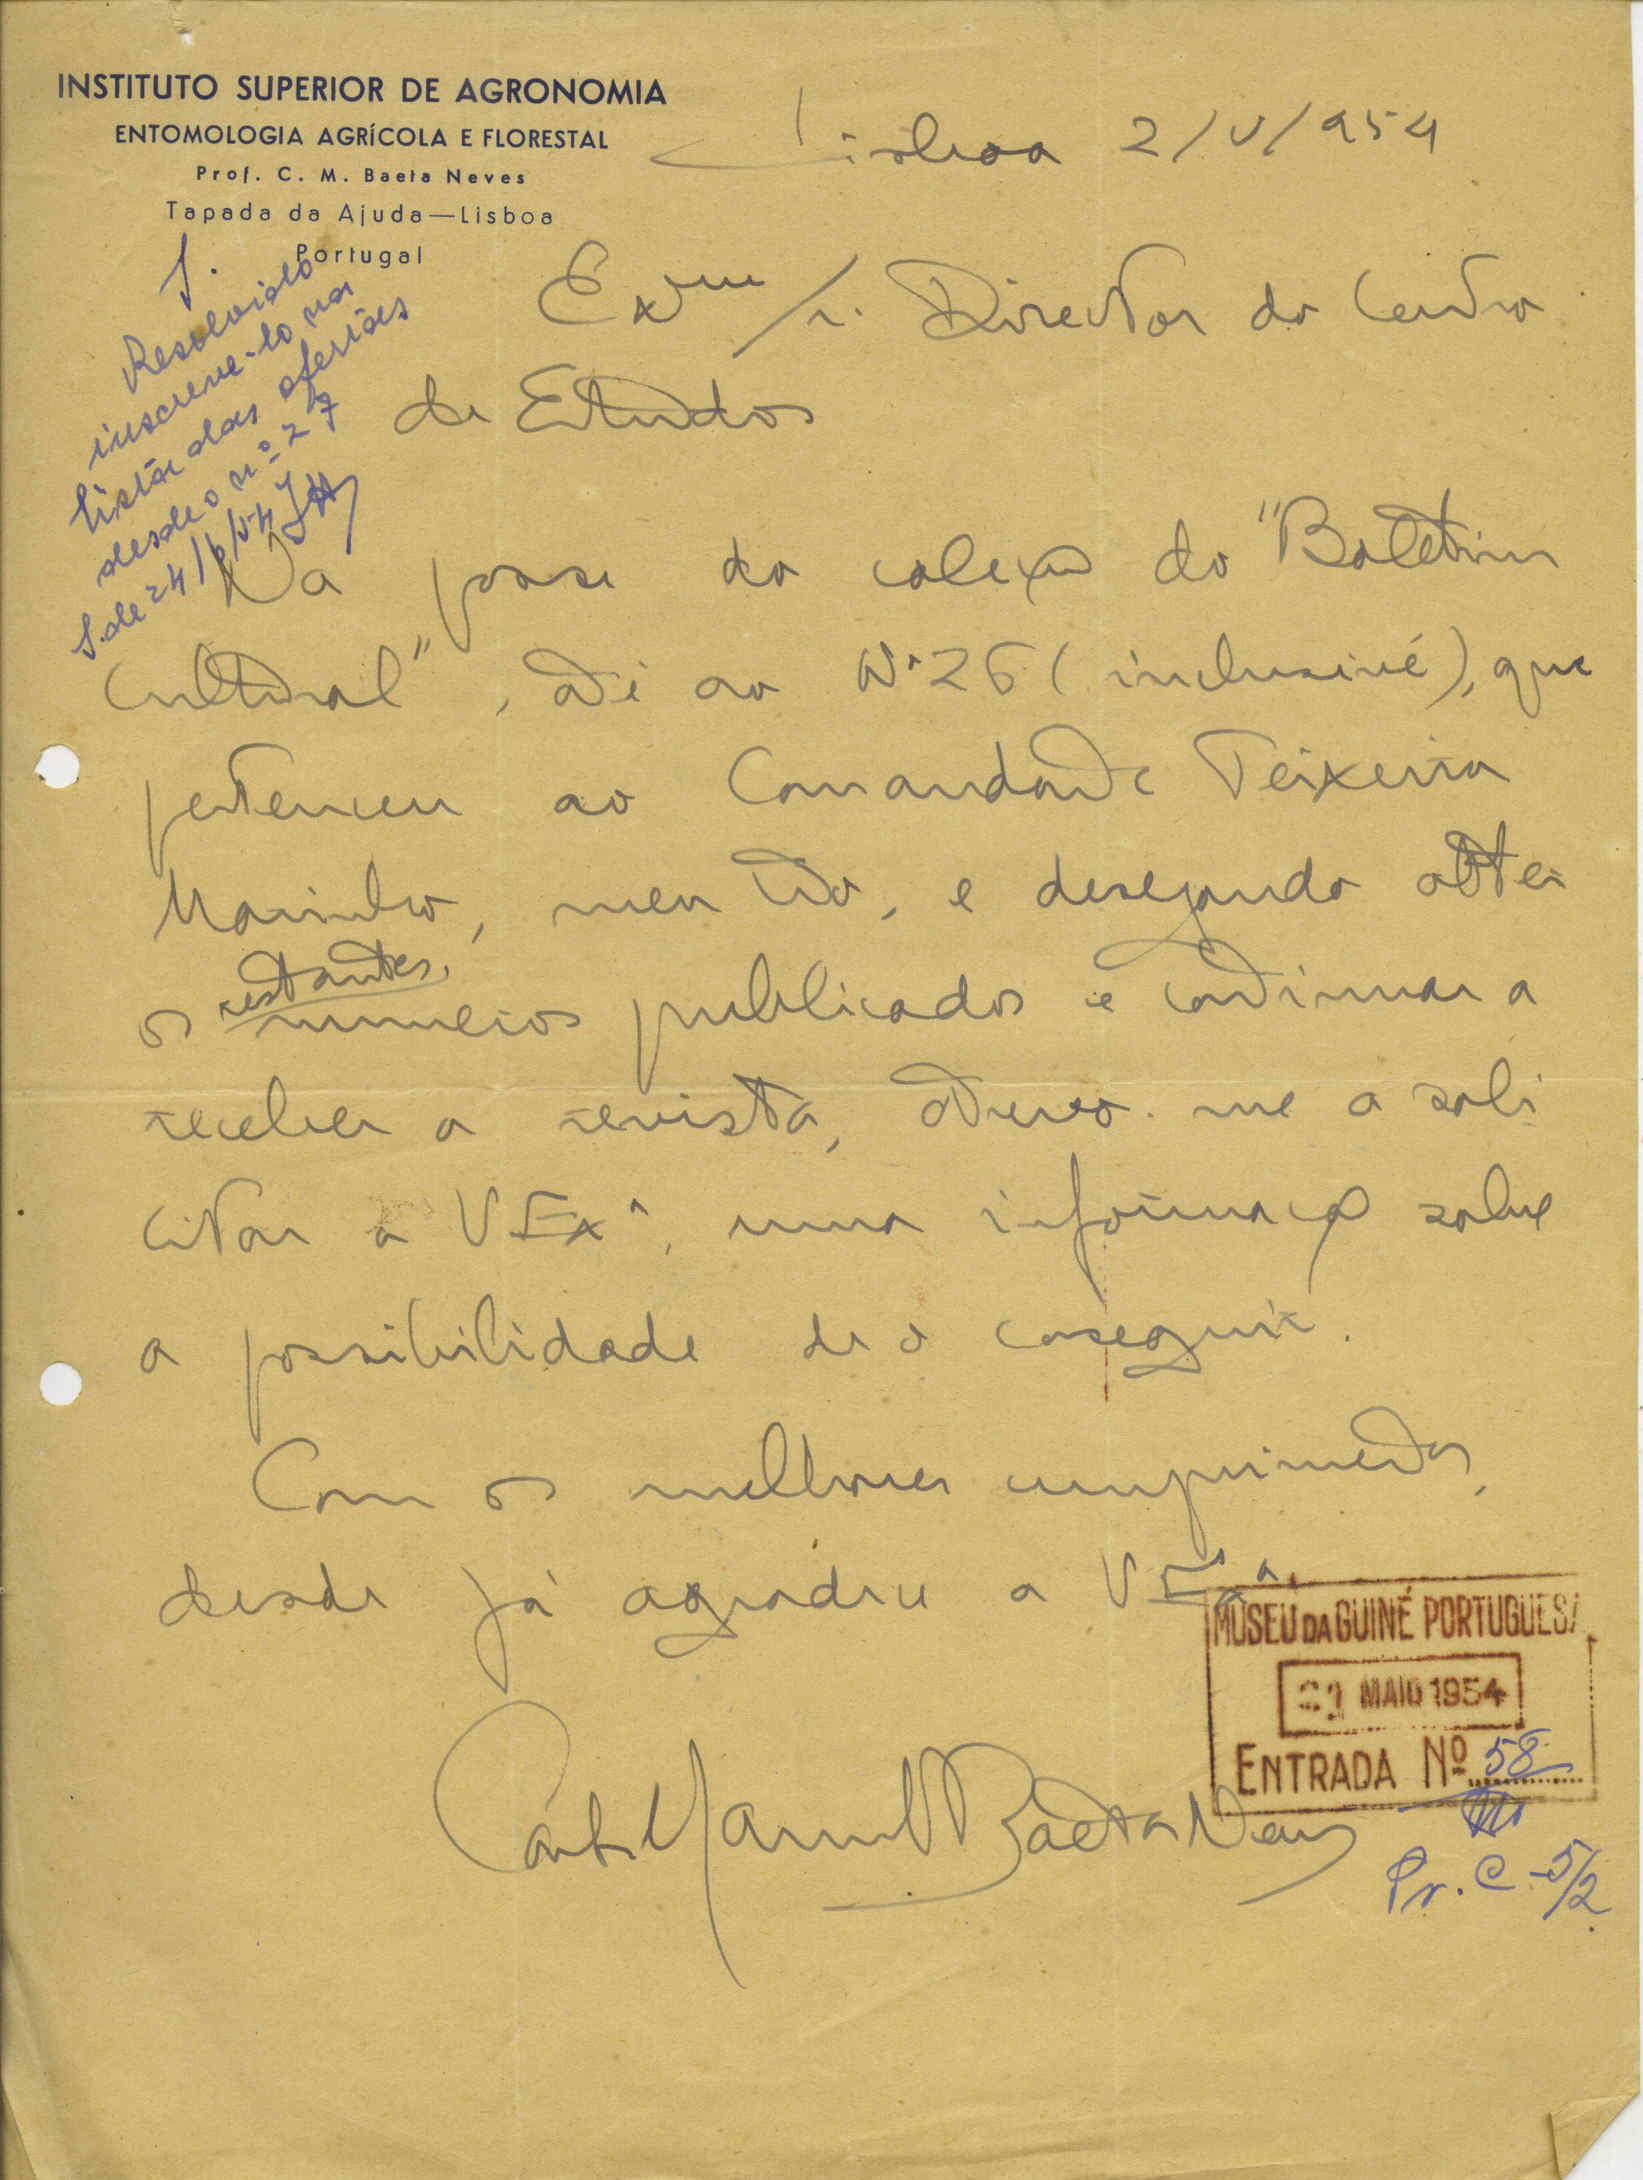 INSTITUTO SUPERIOR DE AGRONOMIA
ENTOMOLOGIA AGRÍCOLA E FLORESTAL
Prof. C. M. Baeta Neves
Tapada da Ajuda—Lisboa
Portugal
Lisboa 2/V/954
Exmo Sr. Director do Centro
de Estudos
Resolvido
inscreve-lo na
lista das ofertas
desde o nº 27
S. de 24/5/54
Na posse da colecção do "Boletim
Cultural", até ao Nº 26 (inclusivé), que
pertenceu ao Comandante Teixeira
Marinho, meu tio, e desejando obter
os restantes numeros publicados e continuar a
receber a revista, atrevo-me a soli
citar a V Exª, uma informação sobre
a possibilidade de o conseguir.
Com os melhores cumprimentos,
desde já agradeço a V Exª.
Carlos Manuel Baeta Neves
MUSEU DA GUINÉ PORTUGUESA
21 MAIO 1954
ENTRADA Nº 58
Pr. C-5/2